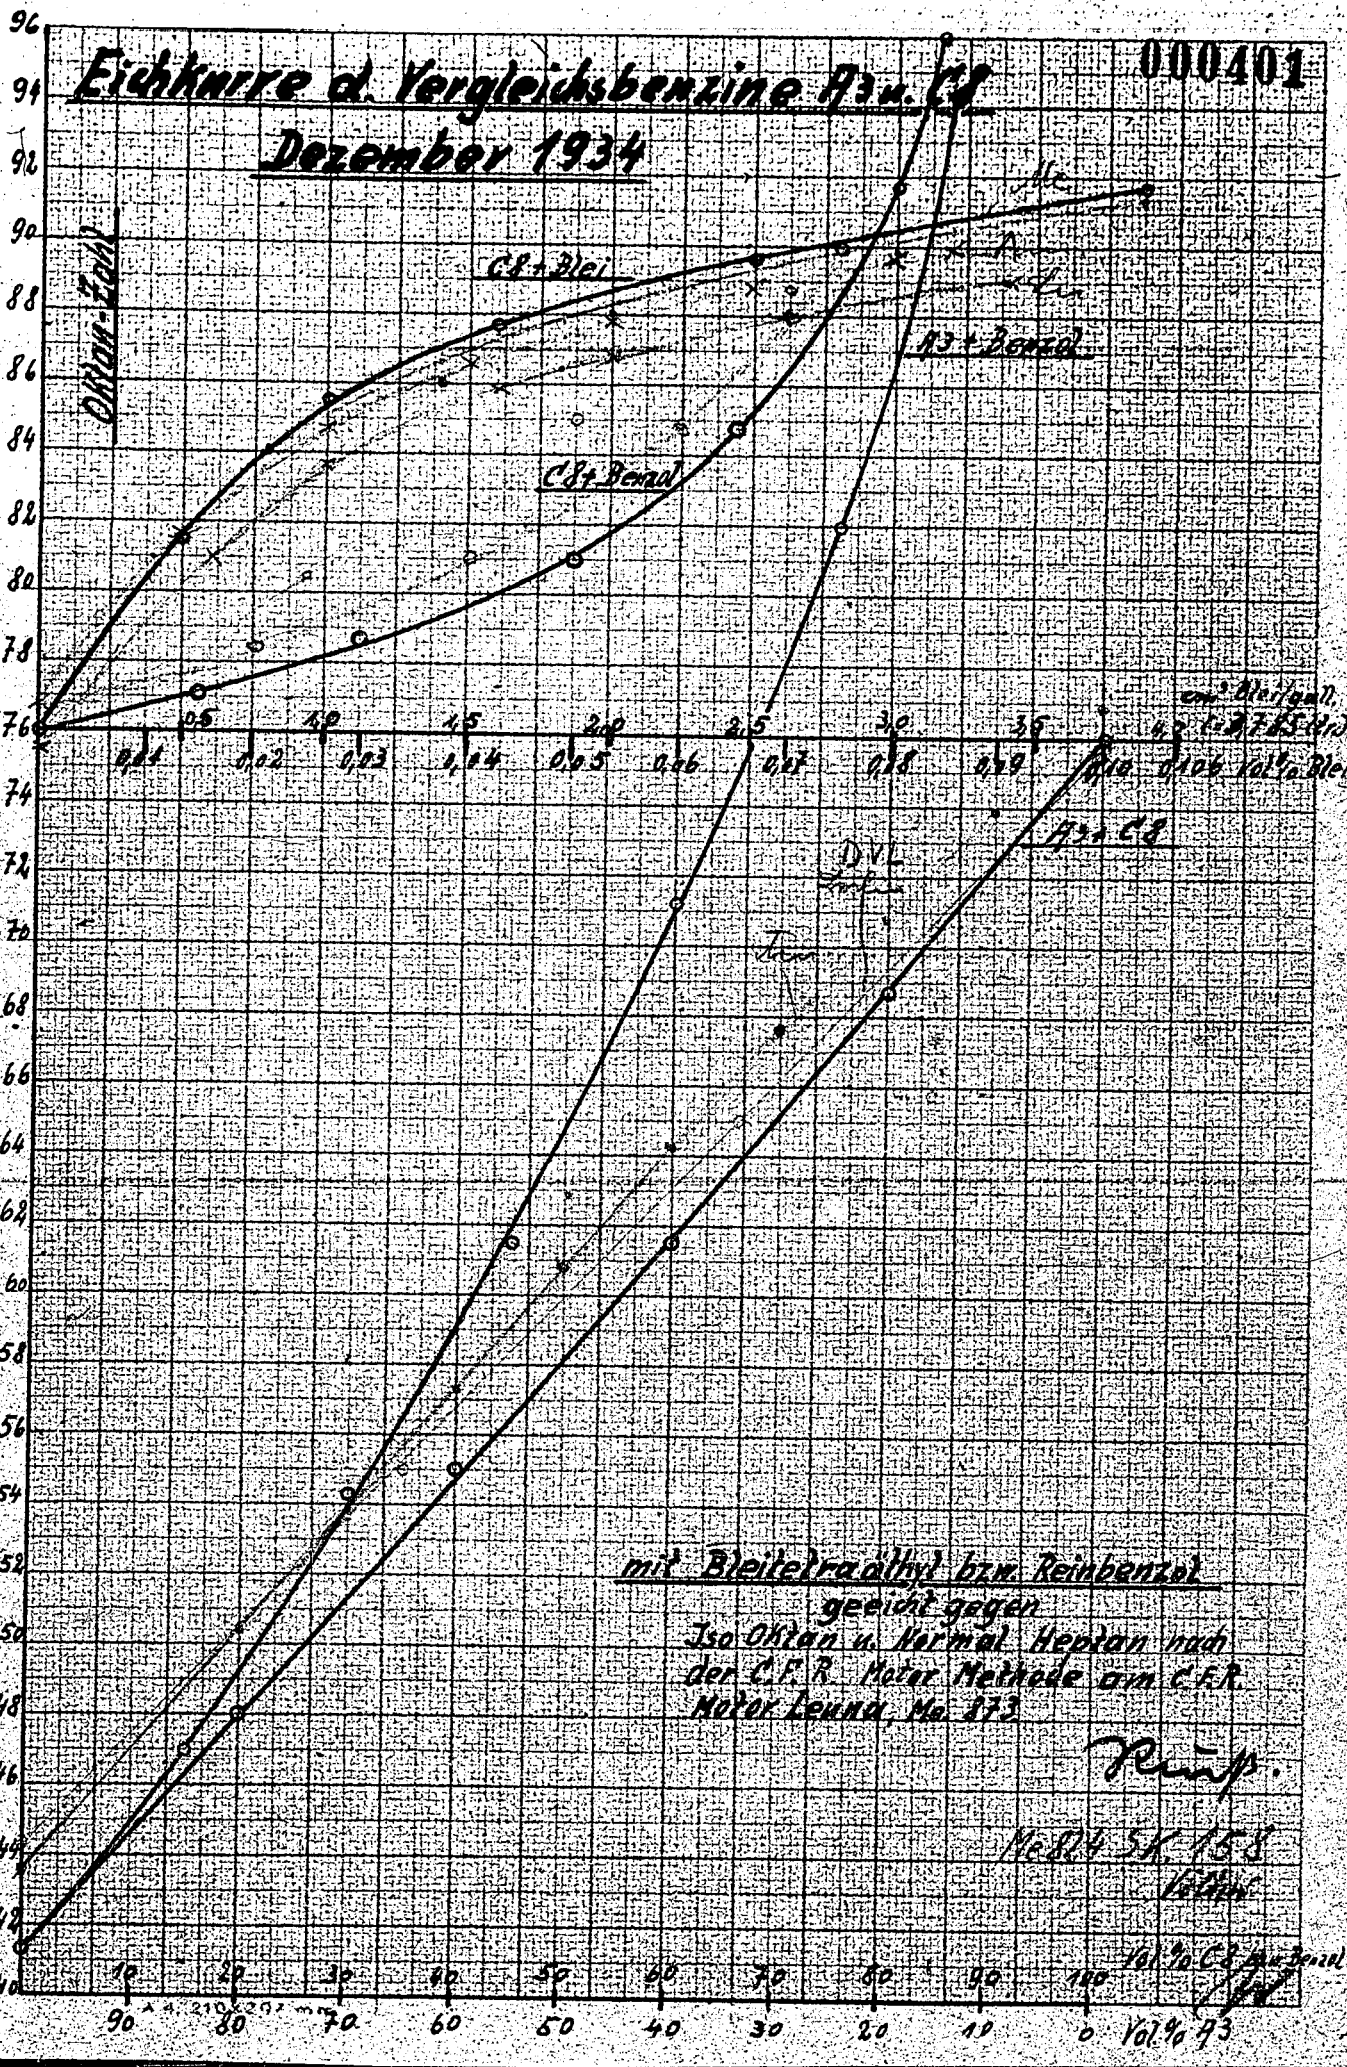 000401
Eichkurve d. Vergleichsbenzine A3 u. C8
Dezember 1934
Oktan-Zahl
96
94
92
90
88
86
84
82
80
78
76
74
72
70
68
66
64
62
60
58
56
54
52
50
48
46
44
42
40
C8 + Blei
A3 + Benzol
C8 + Benzol
cm³ Blei/gall.
0,5 1,0 1,5 2,0 2,5 3,0 3,5
0,01 0,02 0,03 0,04 0,05 0,06 0,07 0,08 0,09 0,10 0,106 Vol% Blei
A3 + C8
DVL
mit Bleitetraäthyl bzw. Reinbenzol
geeicht gegen
Iso Oktan u. Normal Heptan nach
der C.F.R. Motor Methode am C.F.R.
Motor Leuna, Me. 873
Me 824 S.K. 158
Vol % C8 bzw. Benzol
10 20 30 40 50 60 70 80 90 100
A 4 210x297 mm
90 80 70 60 50 40 30 20 10 0 Vol % A3